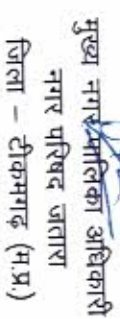 मुख्य नगर पालिका अधिकारी
नगर परिषद जतारा
जिला – टीकमगढ़ (म.प्र.)